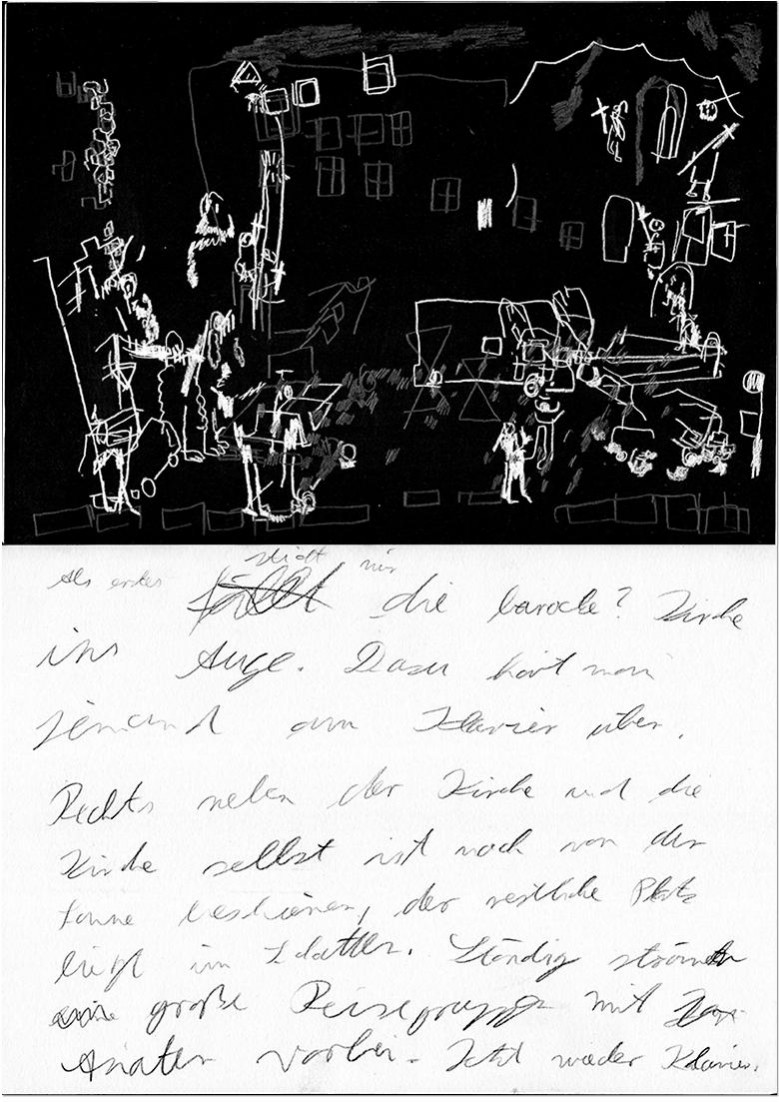 Als erstes sticht mir die barocke? Kirche
ins Auge. Dazu hört man
jemand am Klavier üben.
Rechts neben der Kirche und die
Kirche selbst ist noch von der
Sonne beschienen, der restliche Platz
liegt im Schatten. Ständig strömen
große Reisegruppe mit
Asiaten vorbei. Jetzt wieder Klavier.